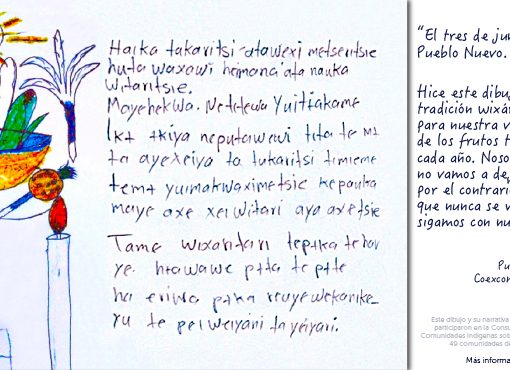 Haika takaritsi -atawexi metseritsie
huta waxawi heimana'ata nauka
witaritsie.
Mayehekwa. Netetewa Yuitiakame
Ikɨ ɨkiya neputawewi tita te mɨ
ta ayexeiya ta tukaritsi timieme
temɨ yuimakwaximetsie kepauka
meiye axe xei witari aya axetsie
Tame wixaritari tepɨka te hav
ye. hɨawawe pɨta te pɨte
ha eriwa pɨka reuyewekanike_
yu te pei weiyani ta yeiyari.
"El tres de ju
Pueblo Nuevo.
Hice este dibu
tradición wixá
para nuestra v
de los frutos t
cada año. Noso
no vamos a de
por el contrari
que nunca se v
sigamos con nu
Pu
Coexcon
Este dibujo y su narrativa
participaron en la Consu
Comunidades Indígenas sob
49 comunidades de
Más informa